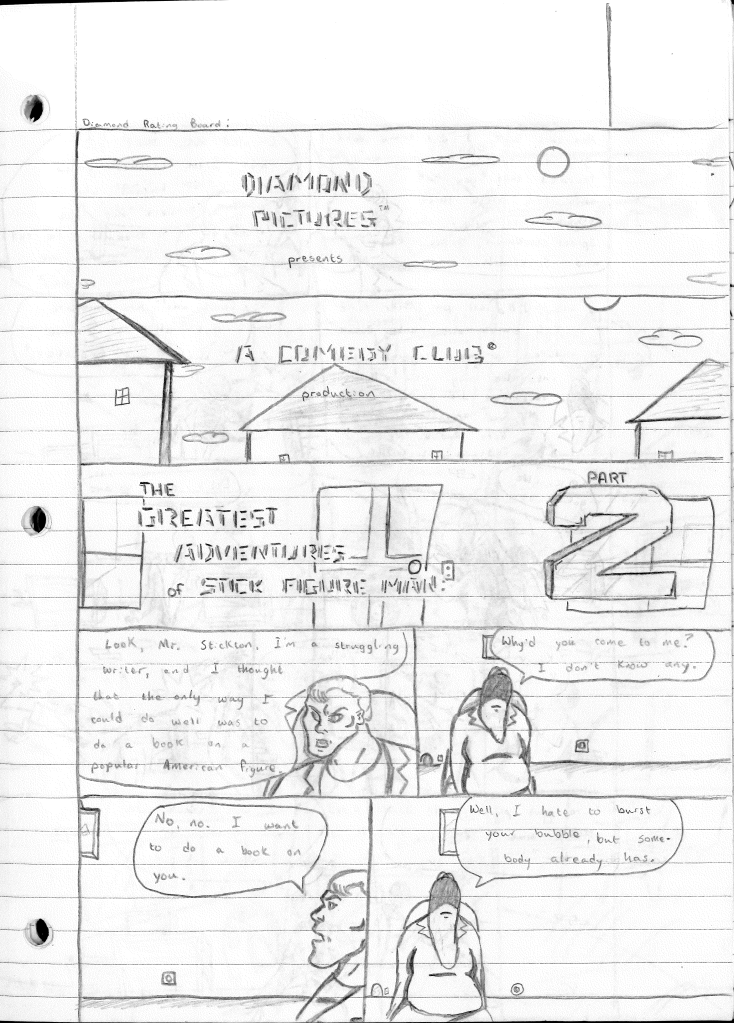 Diamond Rating Board:
DIAMOND
PICTURES™
presents
A COMEDY CLUB®
production
THE
GREATEST
ADVENTURES
of STICK FIGURE MAN:
PART
2
Look, Mr. Stickton, I'm a struggling
writer, and I thought
that the only way I
could do well was to
do a book on a
popular American figure.
Why'd you come to me?
I don't know any.
No, no. I want
to do a book on
you.
Well, I hate to burst
your bubble, but some-
body already has.